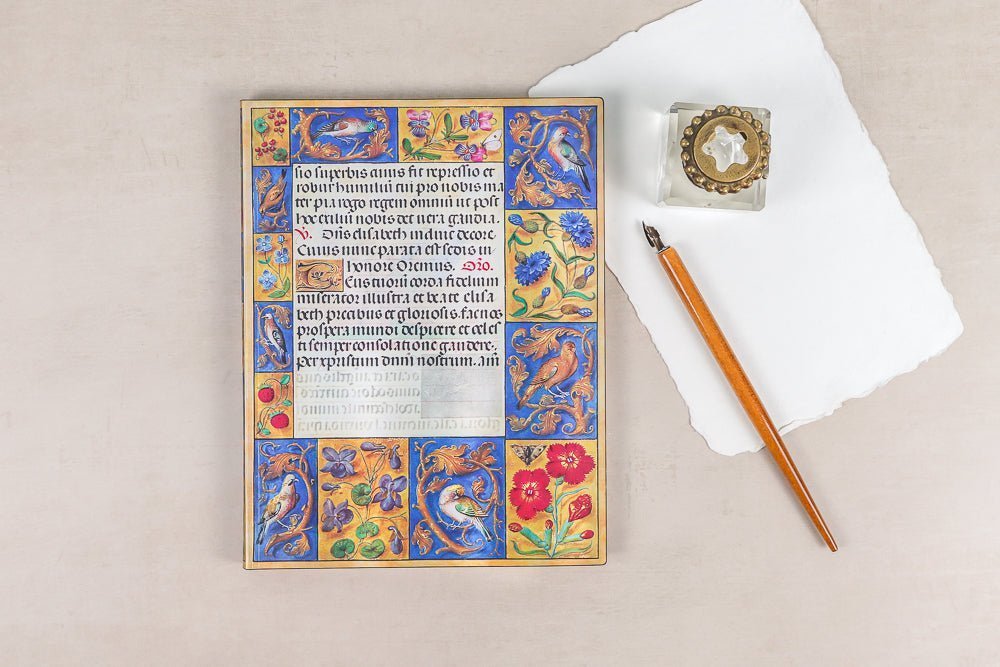 sio superbis anius fit repressio et
robur humiliū cui pro nobis ma
ter pia rogo regem omniū ut post
hoc exiliū nobis det uera gaudia.
V. Dn̄s elisabeth in diue decore.
Cuius nunc parata est sedis in
honore Oremus. Oro.
Eus tuorū corda fidelium
miserator illustra et beate elisa
beth precibus et gloriosis. fac nos
prospera mundi despicere et celes
ti semper consolatione gaudere.
Per xp̄istum dn̄m nostrum. am̄